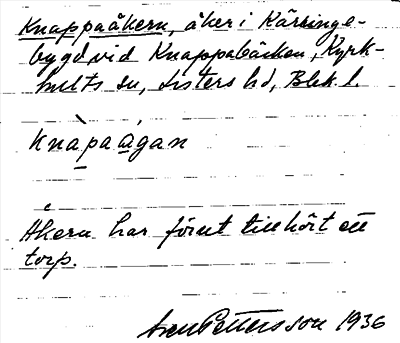 Knappaåkern, åker i Kärringe-
bygd vid Knappabäcken, Kyrk-
hults sn, Listers hd, Blek. l.
Knàpaågan
Åkern har förut tillhört ett
torp.
Sven Pettersson 1936